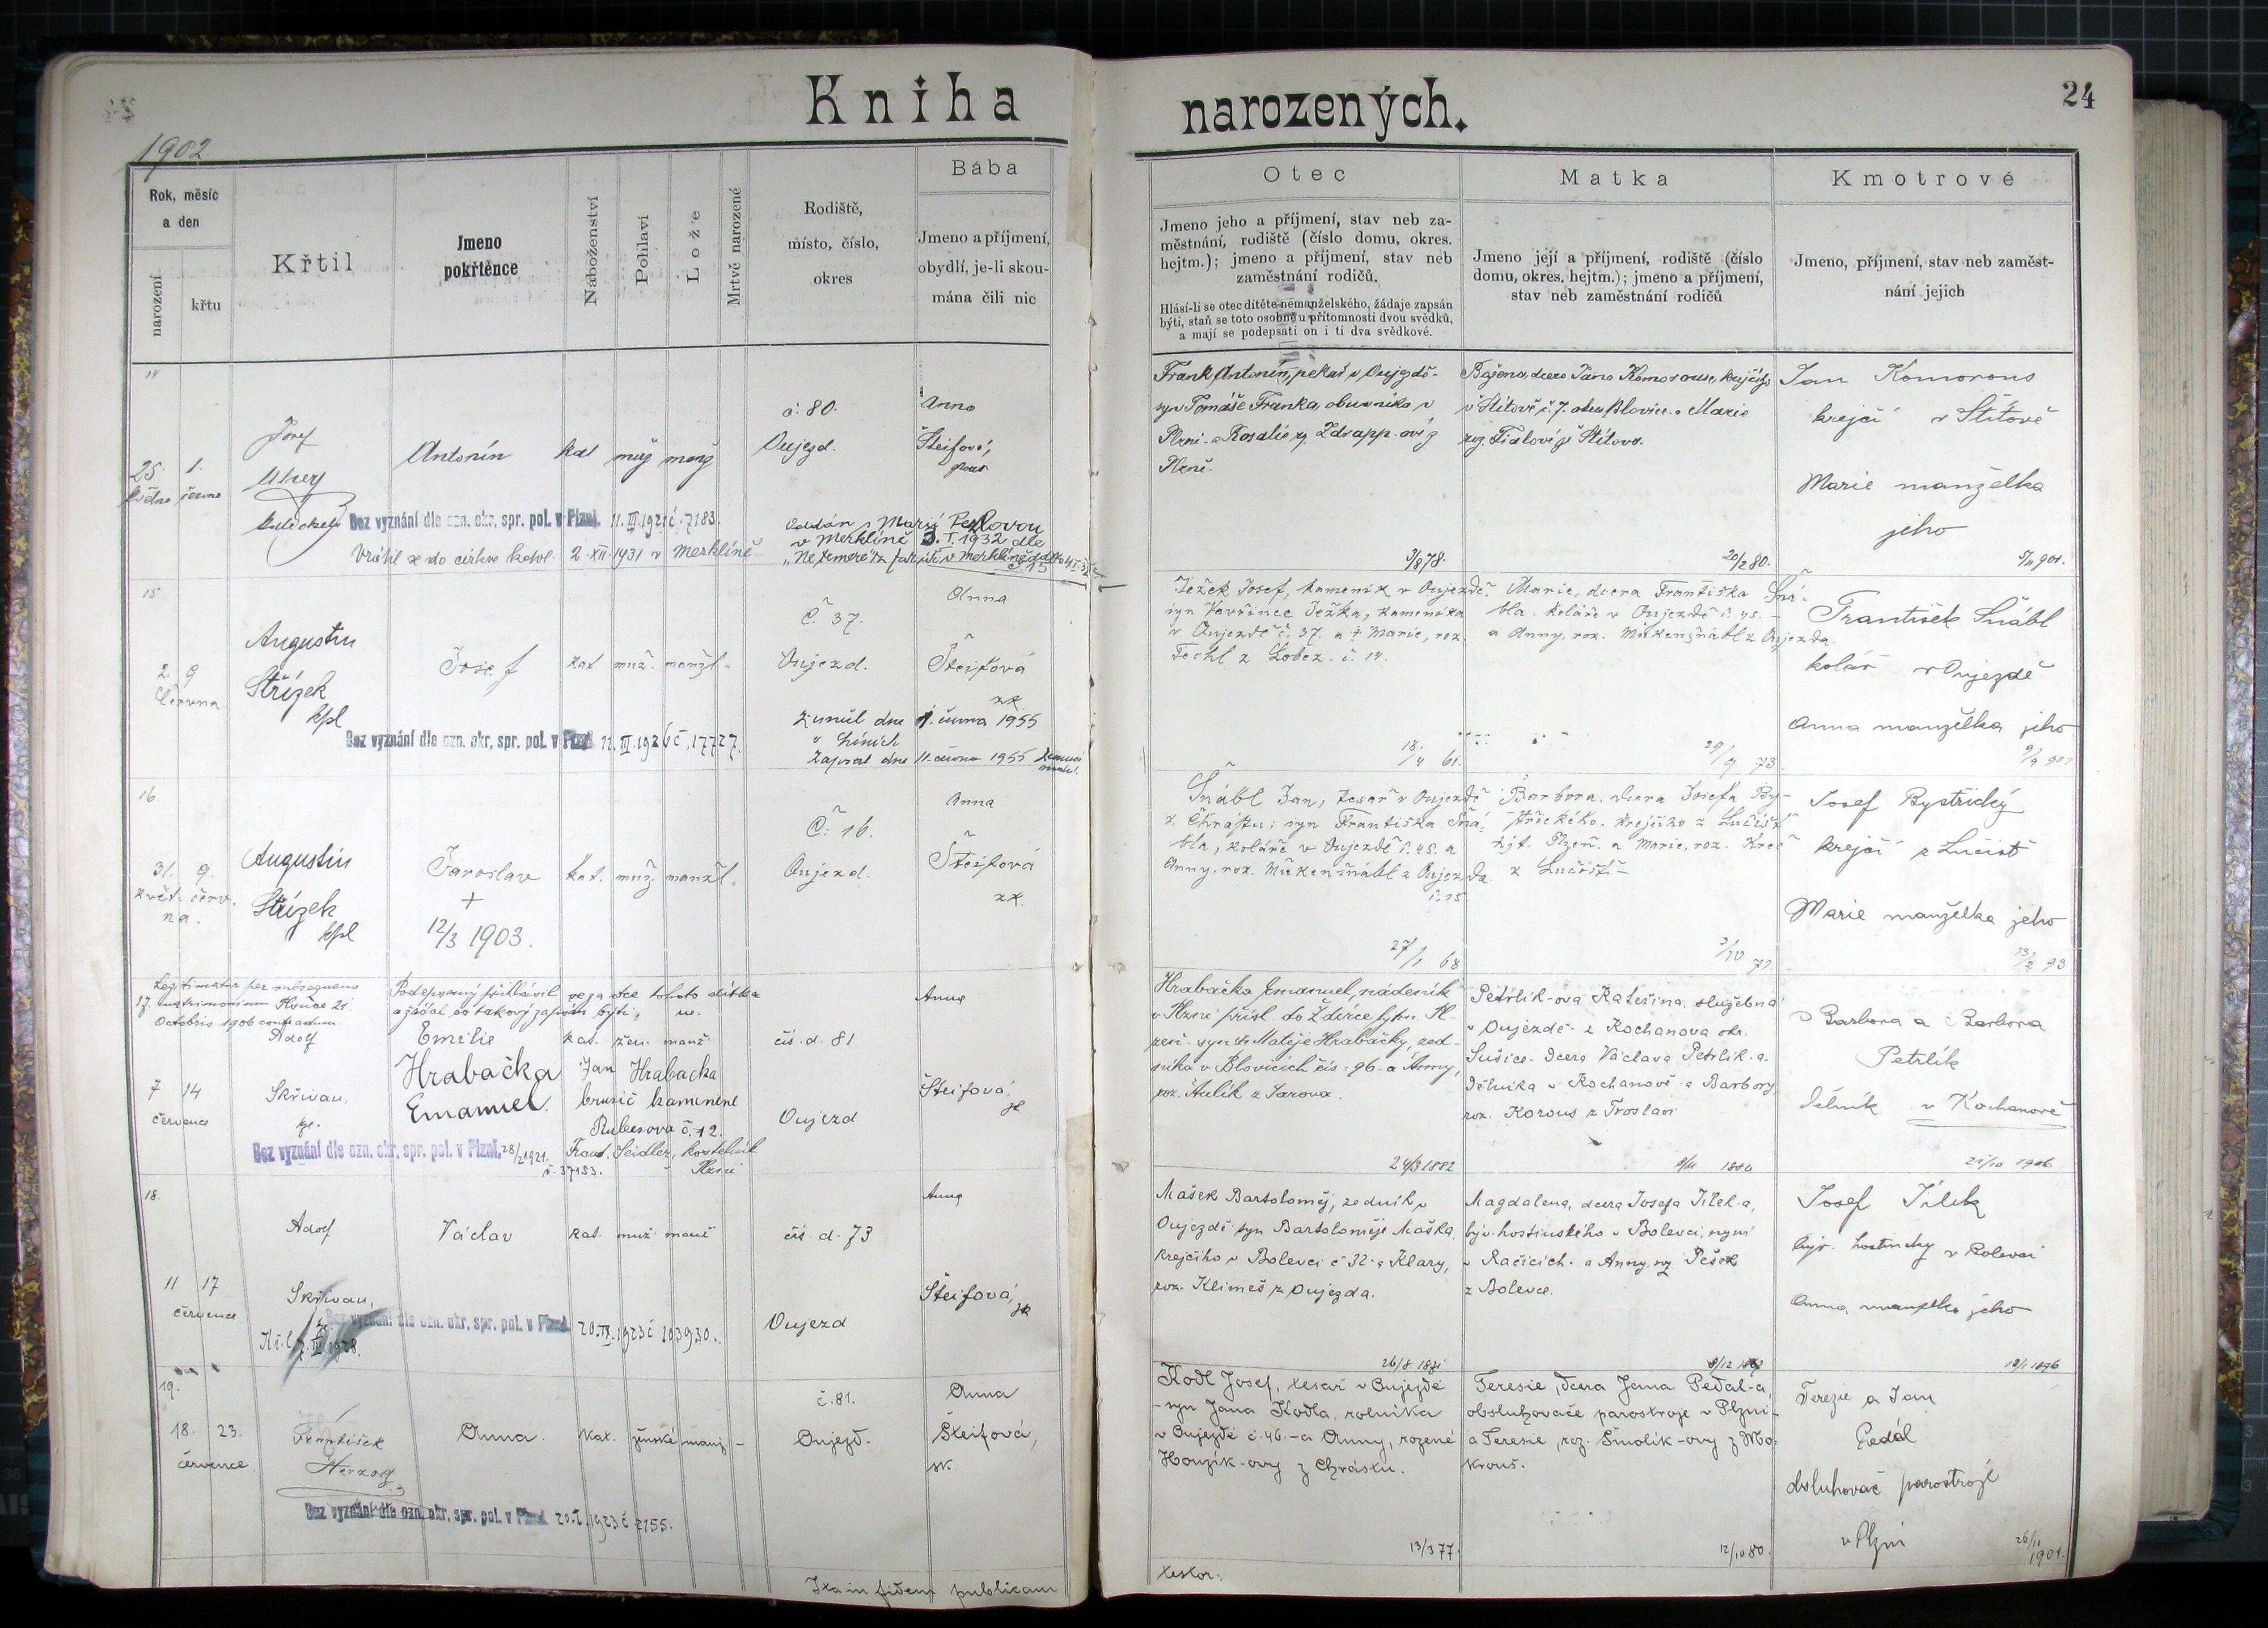 Kniha
narozených.
24
1902.
Rok, měsíc
a den
narození
křtu
Křtil
Jmeno
pokřtěnce
Náboženství
Pohlaví
Lože
Mrtvě narozené
Rodiště,
místo, číslo,
okres
Bába
Jmeno a příjmení,
obydlí, je-li skou-
mána čili nic
Otec
Jmeno jeho a příjmení, stav neb za-
městnání, rodiště (číslo domu, okres.
hejtm.); jmeno a příjmení, stav neb
zaměstnání rodičů.
Hlásí-li se otec dítěte nemanželského, žádaje zapsán
býti, staň se toto osobně u přítomnosti dvou svědků,
a mají se podepsati on i ti dva svědkové.
Matka
Jmeno její a příjmení, rodiště (číslo
domu, okres, hejtm.); jmeno a příjmení,
stav neb zaměstnání rodičů
Kmotrové
Jmeno, příjmení, stav neb zaměst-
nání jejich
14
25. 1.
května června
Josef
Antonín
kat muž manž
č. 80.
Oujezd.
Anna
Šteifová,
Bez vyznání dle ozn. okr. spr. pol. v Plzni. 11. III. 1921 č. 7183.
Vrátil se do církve katol. 2. XII. 1931 v Merklíně
Oddán s Marií
v Merklíně 3. I. 1932 dle
Frank Antonín, pekař v Oujezdě-
syn Tomáše Franka, obuvníka v
Plzni a Rosalie roz. Zdrapp-ové z
Plzně.
3/8 78.
Božena, dcera Jana Komorouse, krejčího
v Štítově č. 7. okres Blovice a Marie
roz. Fialové ze Štítova.
20/2 80.
Jan Komorous
krejčí v Štítově
Marie manželka
jeho
5/11 901.
15
2. 9
června
Augustin
Střízek
kpl
Josef
kat. muž. manžl.
Č. 37.
Oujezd.
Anna
Šteifová
zk.
Bez vyznání dle ozn. okr. spr. pol. v Plzni 12. III. 1926 č. 17727.
Zemřel dne 1. června 1955
v Líních
Zapsal dne 11. června 1955
Ježek Josef, kameník v Oujezdě,
syn Vavřince Ježka, kameníka
v Oujezdě č. 37. a † Marie, roz.
Techl z Lobez. č. 14.
18./4 61.
Marie, dcera Františka Šná-
bla, koláře v Oujezdě č. 45. -
a Anny, roz. Mükenšnábl z Oujezda.
29/9 73.
František Šnábl
kolář v Oujezdě
Anna manželka jeho
16
31. 9.
květ- červ.
na.
Augustin
Střízek
kpl
Jaroslav
+
12/3 1903.
kat. muž. manžl.
Č. 16.
Oujezd.
Anna
Šteifová
zk.
Šnábl Jan, tesař v Oujezdě
z Chrástu; syn Františka Šná-
bla, koláře v Oujezdě č. 45. a
Anny, roz. Mükenšnábl z Oujezda
č. 15
27/1 68
Barbora, dcera Josefa By-
střického, krejčího z Lučiště
hjt. Plzeň. a Marie, roz. Kreč
z Lučiště -
3/10 71.
Josef Bystřický
krejčí z Lučiště
Marie manželka jeho
17.
Legitimatur per subsequens
matrimonium Plsnae 21.
Octobris 1906 contractum.
7 14
července
Adolf
Skřivan,
Podepsaný přihlásil se za otce tohoto dítka
a žádal co takový zapsán býti.
Emilie
kat. žen. manž.
Hrabačka
Emanuel.
Jan Hrabačka
brusič kamene
Rubešova č. 12.
Frant. Seidler, kostelník
Plzni
čís. d. 81
Oujezd
Anna
Šteifová,
Bez vyznání dle ozn. okr. spr. pol. v Plzni. 28/2 1921.
č. 37153.
Hrabačka Emanuel, nádeník
v Plzni přísl. do Ždírce hjtm. Pl-
zeň - syn † Matěje Hrabačky, zed-
níka v Blovicích čís. 96 a Anny,
roz. Aulík z Žarova.
24/3 1882
Petrlík-ova Kateřina, služebná
v Oujezdě z Kochanova okr.
Sušice. Dcera Václava Petrlík-a.
dělníka v Kochanově a Barbory
roz. Korous
Barbora a Barbora
Petrlík
dělník v Kochanově
21/10 1906
18.
11 17
července
Adolf
Skřivan,
Václav
kat. muž. manž
čís. d. 73
Oujezd
Anna
Šteifová,
Bez vyznání dle ozn. okr. spr. pol. v Plzni. 20. IX. 1923 č 103930.
Mašek Bartoloměj, zedník v
Oujezdě syn Bartoloměje Maška,
krejčího v Bolevci č 32 a Klary,
roz. Klimeš z Oujezda.
Magdalena, dcera Josefa Jílek-a,
býv. hostinského v Bolevci, nyní
v Račicích a Anny, roz. Pešek
z Bolevce.
Josef Jílek
býv. hostinský v Bolevci
Anna, manželka jeho
19/1 1896
19.
18. 23.
července
František
Herzog
Anna.
kat. ženské manž. -
č. 81.
Oujezd.
Anna
Šteifová,
zk.
Bez vyznání dle ozn. okr. spr. pol. v Plzni 20. I. 1923 č 2155.
Kodl Josef, tesař v Oujezdě
- syn Jana Kodla, rolníka
v Oujezdě č. 46. - a Anny, rozené
Houzík-ovy z Chrástu.
13/3 77.
Teresie, dcera Jana Pedal-a,
obsluhovače parostroje v Plzni -
a Teresie, roz. Smolík-ovy z Mo-
krouš.
12/10 80.
Terezie a Jan
Pedál
obsluhovač parostroje
v Plzni
26/11 1901.
Ita in fidem publicam
testor.